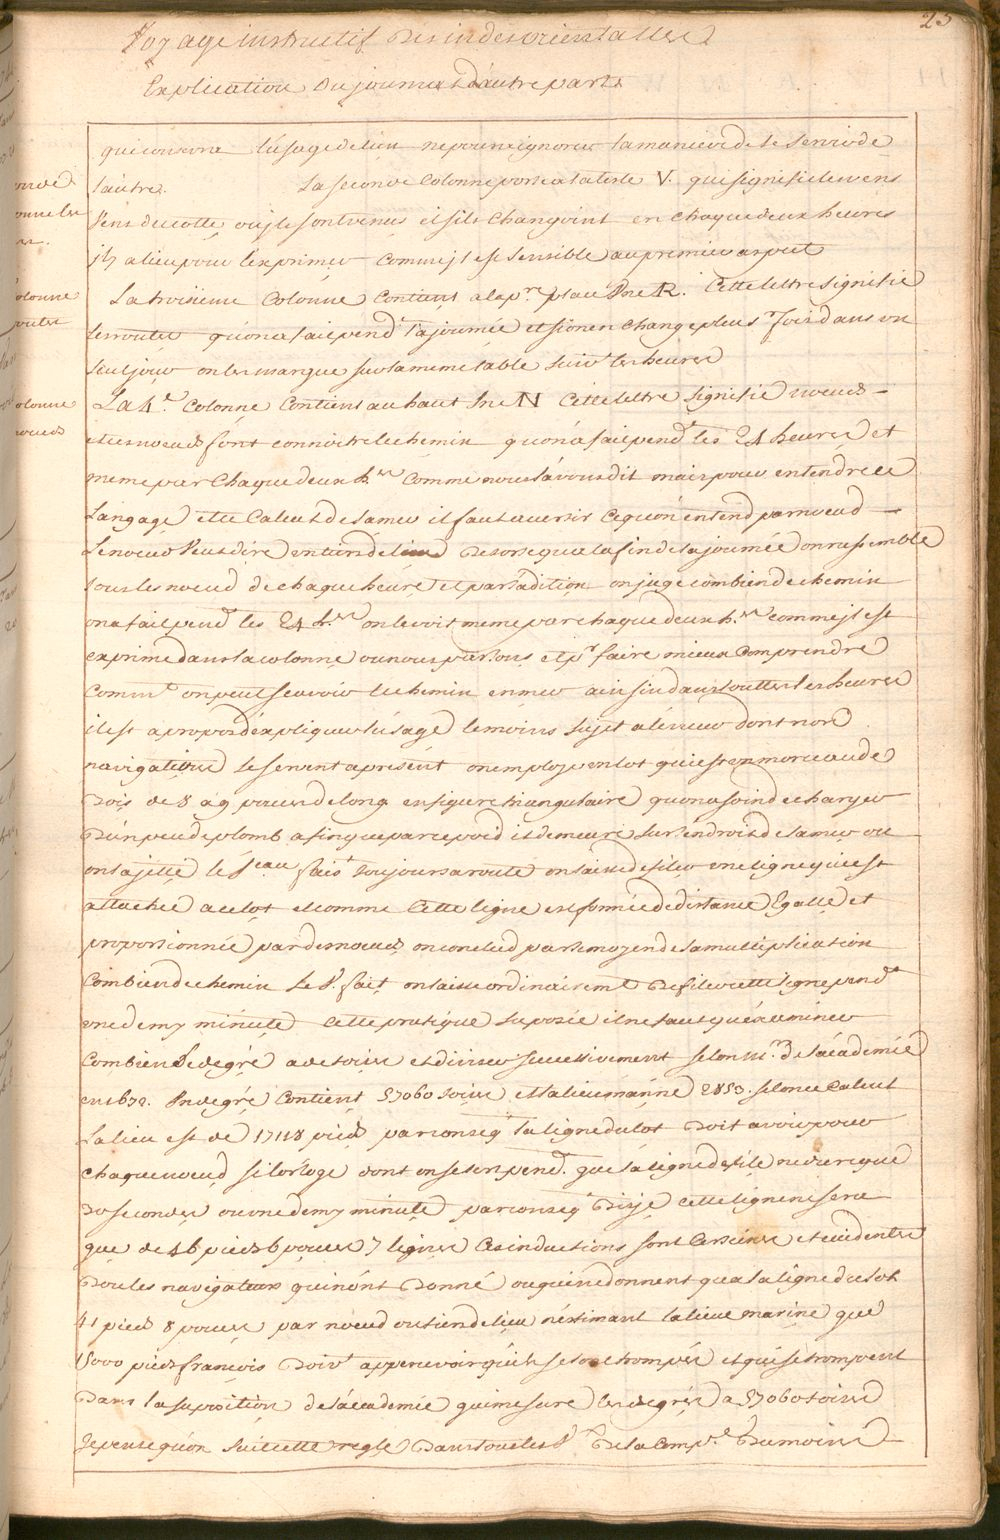 23
Voyage instructif Des indes orientalles
Explication Du journal d'autre parts
qui concevra l'usage de l'un ne poura ignorer la maniere de se servir de
l'autre. La seconde Colonne porte a la teste V. qui signifie le vens
Vens du cotte ou jls sont venus et s'ils changoint en chaque deux heures
jl y a lieu pour l'exprimer comme jl est sensible au premier aspect
La troisieme Colonne Contient a la pre. place Une R. Cette lettre signifie
les routes qu'on a fait pend.t la journée et si on en change plus.rs fois dans un
seul jour on les marque sur la meme table suiv.t les heures
La 4.e Colonne Contient au haut Une N Cette lettre signifie noeuds
et ces noeuds font connoitre le chemin qu'on a fait pend.t les 24 heures et
meme par Chaque deux h.res comme nous l'avons dit mais pour entendre ce
Langage et ce Calcul de la mer il faut avertir ce qu'on entend par noeud
Le noeud Veut dire un tiers de lieue De sorte qu'a la fin de la journée on rassemble
tous les noeud de chaque heure et par l'adition on juge combien de chemin
on a fait pend.t les 24 h.res on le voit meme par chaque deux h.res comme jl est
exprimé dans la colonne ou nous parlons et p.r faire mieux Comprendre
Comm.t on peut scavoir le chemin en mer ainsi dans touttes les heures
il est a propos d'expliquer l'usage le moins sujet a l'erreur dont nos
navigateurs se servent a présent on employe un lot qui est un morceau de
Bois de 8 a 9 pouces de long en figure triangulaire qu'on a soin de charger
D'un peu de plomb afin que par ce poid il demeure sur l'endroit de la mer ou
on l'a jetté le V.eau fais.t toujours sa route on laisse defiler une ligne qui est
attachée a ce lot et comme Cette ligne est formée de distance Egalle et
proportionnée par des noeuds on conclud par le moyen de la multiplication
Combien de chemin le V. fait on laisse ordinairem.t Defiler cette ligne pend.t
une demy minute cette pratique suposée il ne faut qu'examiner
Combien le degré a de toises et diviser successivement selon m.rs de l'académie
en 1672. Un degré Contient 57060 toises et la lieue marine 2853. selon ce Calcul
La lieu est de 17118 pieds par conseq.t la ligne du lot Doit avoir pour
chaque noeud si l'orloge dont on se sert pend.t que la ligne defile ne dure que
30 secondes ou une demy minute par conseq.t Disje cette ligne ne sera
que de 46 pieds 6 pouces 7 lignes Ces inductions sont Certaines et evidentes
Dou les navigateurs qui n'ont Donné ou qui ne donnent qu'a la ligne du lot
41 pieds 8 pouces par noeud ou tiers de lieu n'estimant la lieue marine que
15000 pieds francois Doiv.t appercevoir qu'ils se sont trompés et qu'ils se trompent
Dans la suposition de l'académie qui mesure les degrés a 57060 toises
Je pense qu'on suit cette regle Dans tous les V.x De la Comp.e Du moins